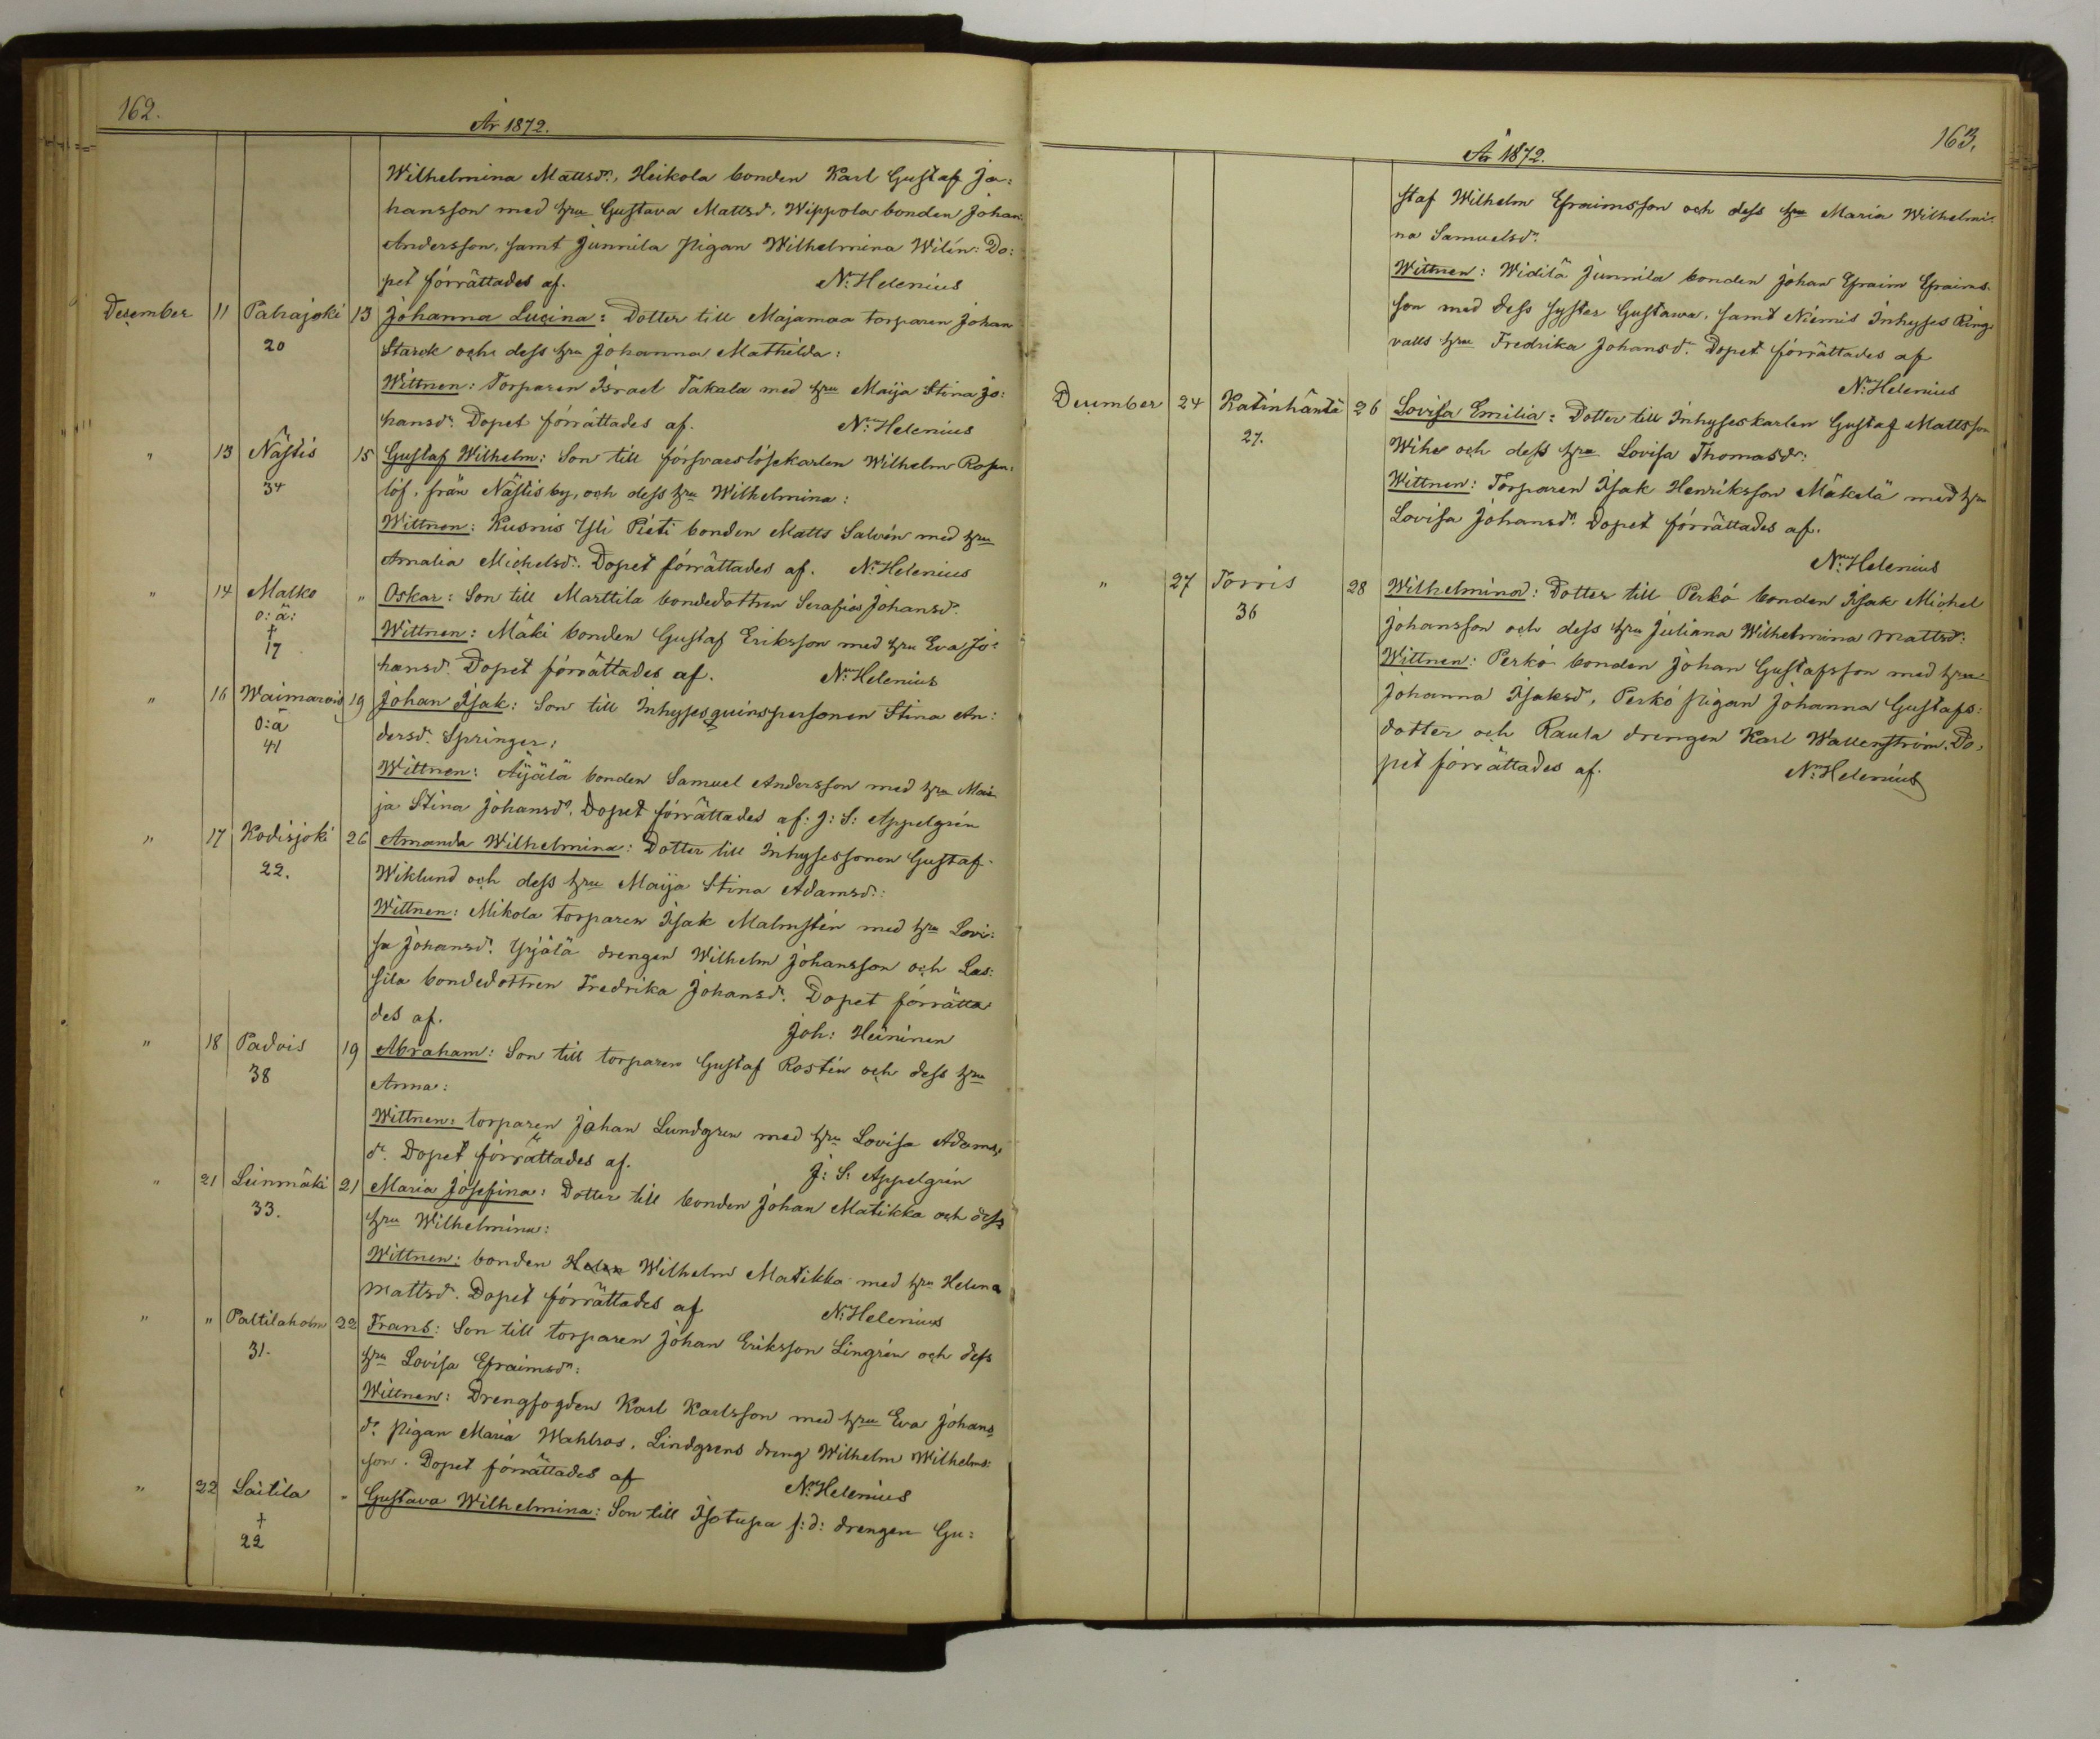 162.
År 1872.
Wilhelmina Mattsdr, Heikola bonden Karl Gustaf Jo:
hansson med hru Gustava Mattsd. Wippola bonden Johan
Andersson, samt Junnila pigan Wilhelmina Wilén: Do:
pet förrättades af. N. Helenius
December 11 Palrajoki 13 Johanna Lucina: Dotter till Majamaa torparen Johan
20 Starck och dess hru Johanna Mathilda:
Wittnen: Torparen Israel Takala med hru Maija Stina Jo:
hansdr. Dopet förrättades af. N. Helenius
" 13 Nästis 15 Gustaf Wilhelm: Son till försvarslösekarlen Wilhelm Rosen:
34 löf, från Nästis by, och dess hru Wilhelmina:
Wittnen: Kusnis Yli Pieti bonden Matts Salvén med hru
Amalia Michelsdr. Dopet förrättades af. N. Helenius
" 14 Malko " Oskar: Son till Marttila bondedottren Serafia Johansdr.
o: ä:
† Wittnen: Mäki bonden Gustaf Eriksson med hru Eva Jo:
17 hansdr. Dopet förrättades af. N. Helenius
" 16 Waimarois 19 Johan Isak: Son till Inhyses qvinspersonen Stina An:
o: ä dersdr. Springer:
41 Wittnen: Äijälä bonden Samuel Andersson med hru Mai
ja Stina Johansdr. Dopet förrättades af: J: S: Appelgrén
" 17 Kodisjoki 26 Amanda Wilhelmina: Dotter till Inhysessonen Gustaf
22. Wiklund och dess hru Maija Stina Adamsdr:
Wittnen: Mikola torparen Isak Malmstén med hru Lovi:
sa Johansdr. Yrjälä drengen Wilhelm Johansson och Las:
sila bondedottren Fredrika Johansdr. Dopet förrätta
des af. Joh: Heininen
" 18 Padvis 19 Abraham: Son till torparen Gustaf Rostén och dess hru
38 Anna:
Wittnen: torparen Johan Lundgren med hru Lovisa Adams,
dr. Dopet förrättades af. J: S. Appelgrén
" 21 Leinmäki 21 Maria Josefina: Dotter till bonden Johan Matikka och dess
33. hru Wilhelmina:
Wittnen: bonden Wilhelm Matikka med hru Helena
Mattsdr. Dopet förrättades af N. Helenius
" " Paltilaholm 22 Frans: Son till torparen Johan Eriksson Lingrén och dess
31. hru Lovisa Efraimsdr:
Wittnen: Drengfogden Karl Karlsson med hru Eva Johans
dr. pigan Maria Wahlros, Lindgrens dreng Wilhelm Wilhelms:
son. Dopet förrättades af N. Helenius
" 22 Laitila " Gustava Wilhelmina: Son till Isotupa f: d: drengen Gu:
†
22
163.
År 1872.
staf Wilhelm Efraimsson och dess hru Maria Wilhelmi:
na Samuelsdr.
Wittnen: Widilä Junnila bonden Johan Efraim Efraims
son med dess syster Gustawa, samt Niemis Inhyses Ring
valls hru Fredrika Johansdr. Dopet förrättades af
N. Helenius
December 24 Katinhäntä 26 Lovisa Emilia: Dotter till Inhyseskarlen Gustaf Mattsson
27. Wihe och dess hru Lovisa Thomasdr:
Wittnen: Torparen Isak Henriksson Mäkelä med hru
Lovisa Johansdr. Dopet förrättades af.
N. Helenius
" 27 Torris 28 Wilhelmina: Dotter till Perkö bonden Isak Michel
36 Johansson och dess hru Juliana Wilhelmina Mattsdr:
Wittnen: Perkö bonden Johan Gustafsson med hru
Johanna Isaksdr, Perkö pigan Johanna Gustafs:
dotter och Raula drengen Karl Wallenström. Do,
pet förrättades af. N. Helenius